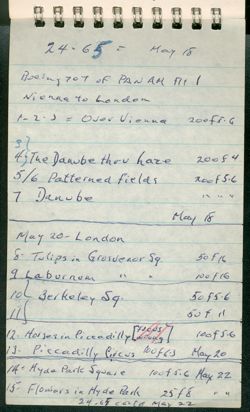 24-65 = May 18
Boeing 707 of PAN AM Flt 1
Vienna to London
1-2-3 = Over Vienna 200 f5.6
3}
4} The Danube thru haze 200 f4
5/6 Patterned fields 200 f5.6
7 Danube " " "
May 18
May 20 - London
8- Tulips in Grosvenor Sq. 50 f16
9 Labornum " " 100 f16
10} Berkeley Sq. 50 f5.6
11} 50 f11
12- Horses in Piccadilly 100 f5.6
13- Piccadilly Circus 100 f6.3 May 20
14- Hyde Park Square 100 f5.6 May 22
15- Flowers in Hyde Park 25 f8 " "
24-65 May 22